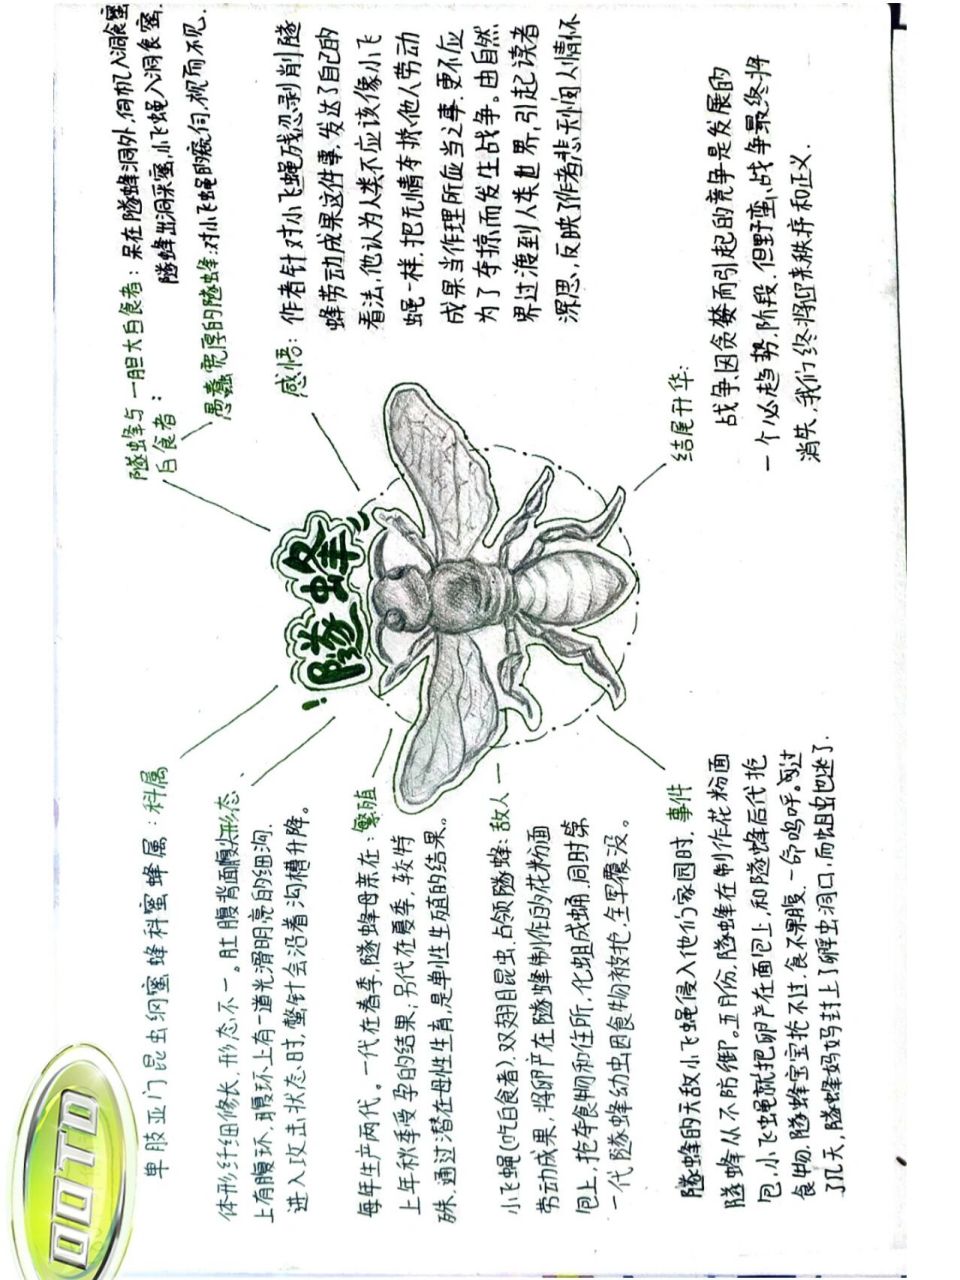 隧蜂
单肢亚门昆虫纲蜜蜂科蜜蜂属:科属
体形纤细修长,形态不一。肚腹背面腹尖形态
上有腹环,腹环上有一道光滑明亮的细沟,
进入攻击状态时,螫针会沿着沟槽升降。
每年生产两代。一代在春季,隧蜂母亲在:繁殖
上年秋季受孕的结果;另代在夏季,较特
殊,通过潜在母性生育,是单性生殖的结果。
小飞蝇(吃白食者),双翅目昆虫,占领隧蜂:敌人
劳动成果,将卵产在隧蜂制作的花粉面
包上,抢夺食物和住所,化蛆成蛹,同时第
一代隧蜂幼虫因食物被抢,全军覆没。
隧蜂的天敌小飞蝇侵入他们家园时,事件
隧蜂从不防御。五月份,隧蜂在制作花粉面
包,小飞蝇就把卵产在面包上,和隧蜂后代抢
食物,隧蜂宝宝抢不过,食不果腹,一命呜呼。可过
了几天,隧蜂妈妈封上了孵虫洞口,而蛆虫也逃了.
隧蜂与
白食者:
一胆大白食者:呆在隧蜂洞外,伺机入洞食蜜
隧蜂出洞采蜜,小飞蝇入洞食蜜.
愚蠢宽厚的隧蜂:对小飞蝇的窥伺,视而不见.
感悟:
作者针对小飞蝇残忍剥削隧
蜂劳动成果这件事,发达了自己的
看法,他认为人类不应该像小飞
蝇一样,把无情夺掠他人劳动
成果当作理所应当之事,更不应
为了夺掠而发生战争。由自然
界过渡到人类世界,引起读者
深思,反映了作者悲天悯人情怀
结尾升华:
战争,因贪婪而引起的竞争是发展的
一个必趋势,阶段,但野蛮,战争最终将
消失,我们终将迎来秩序和正义.
DOTD